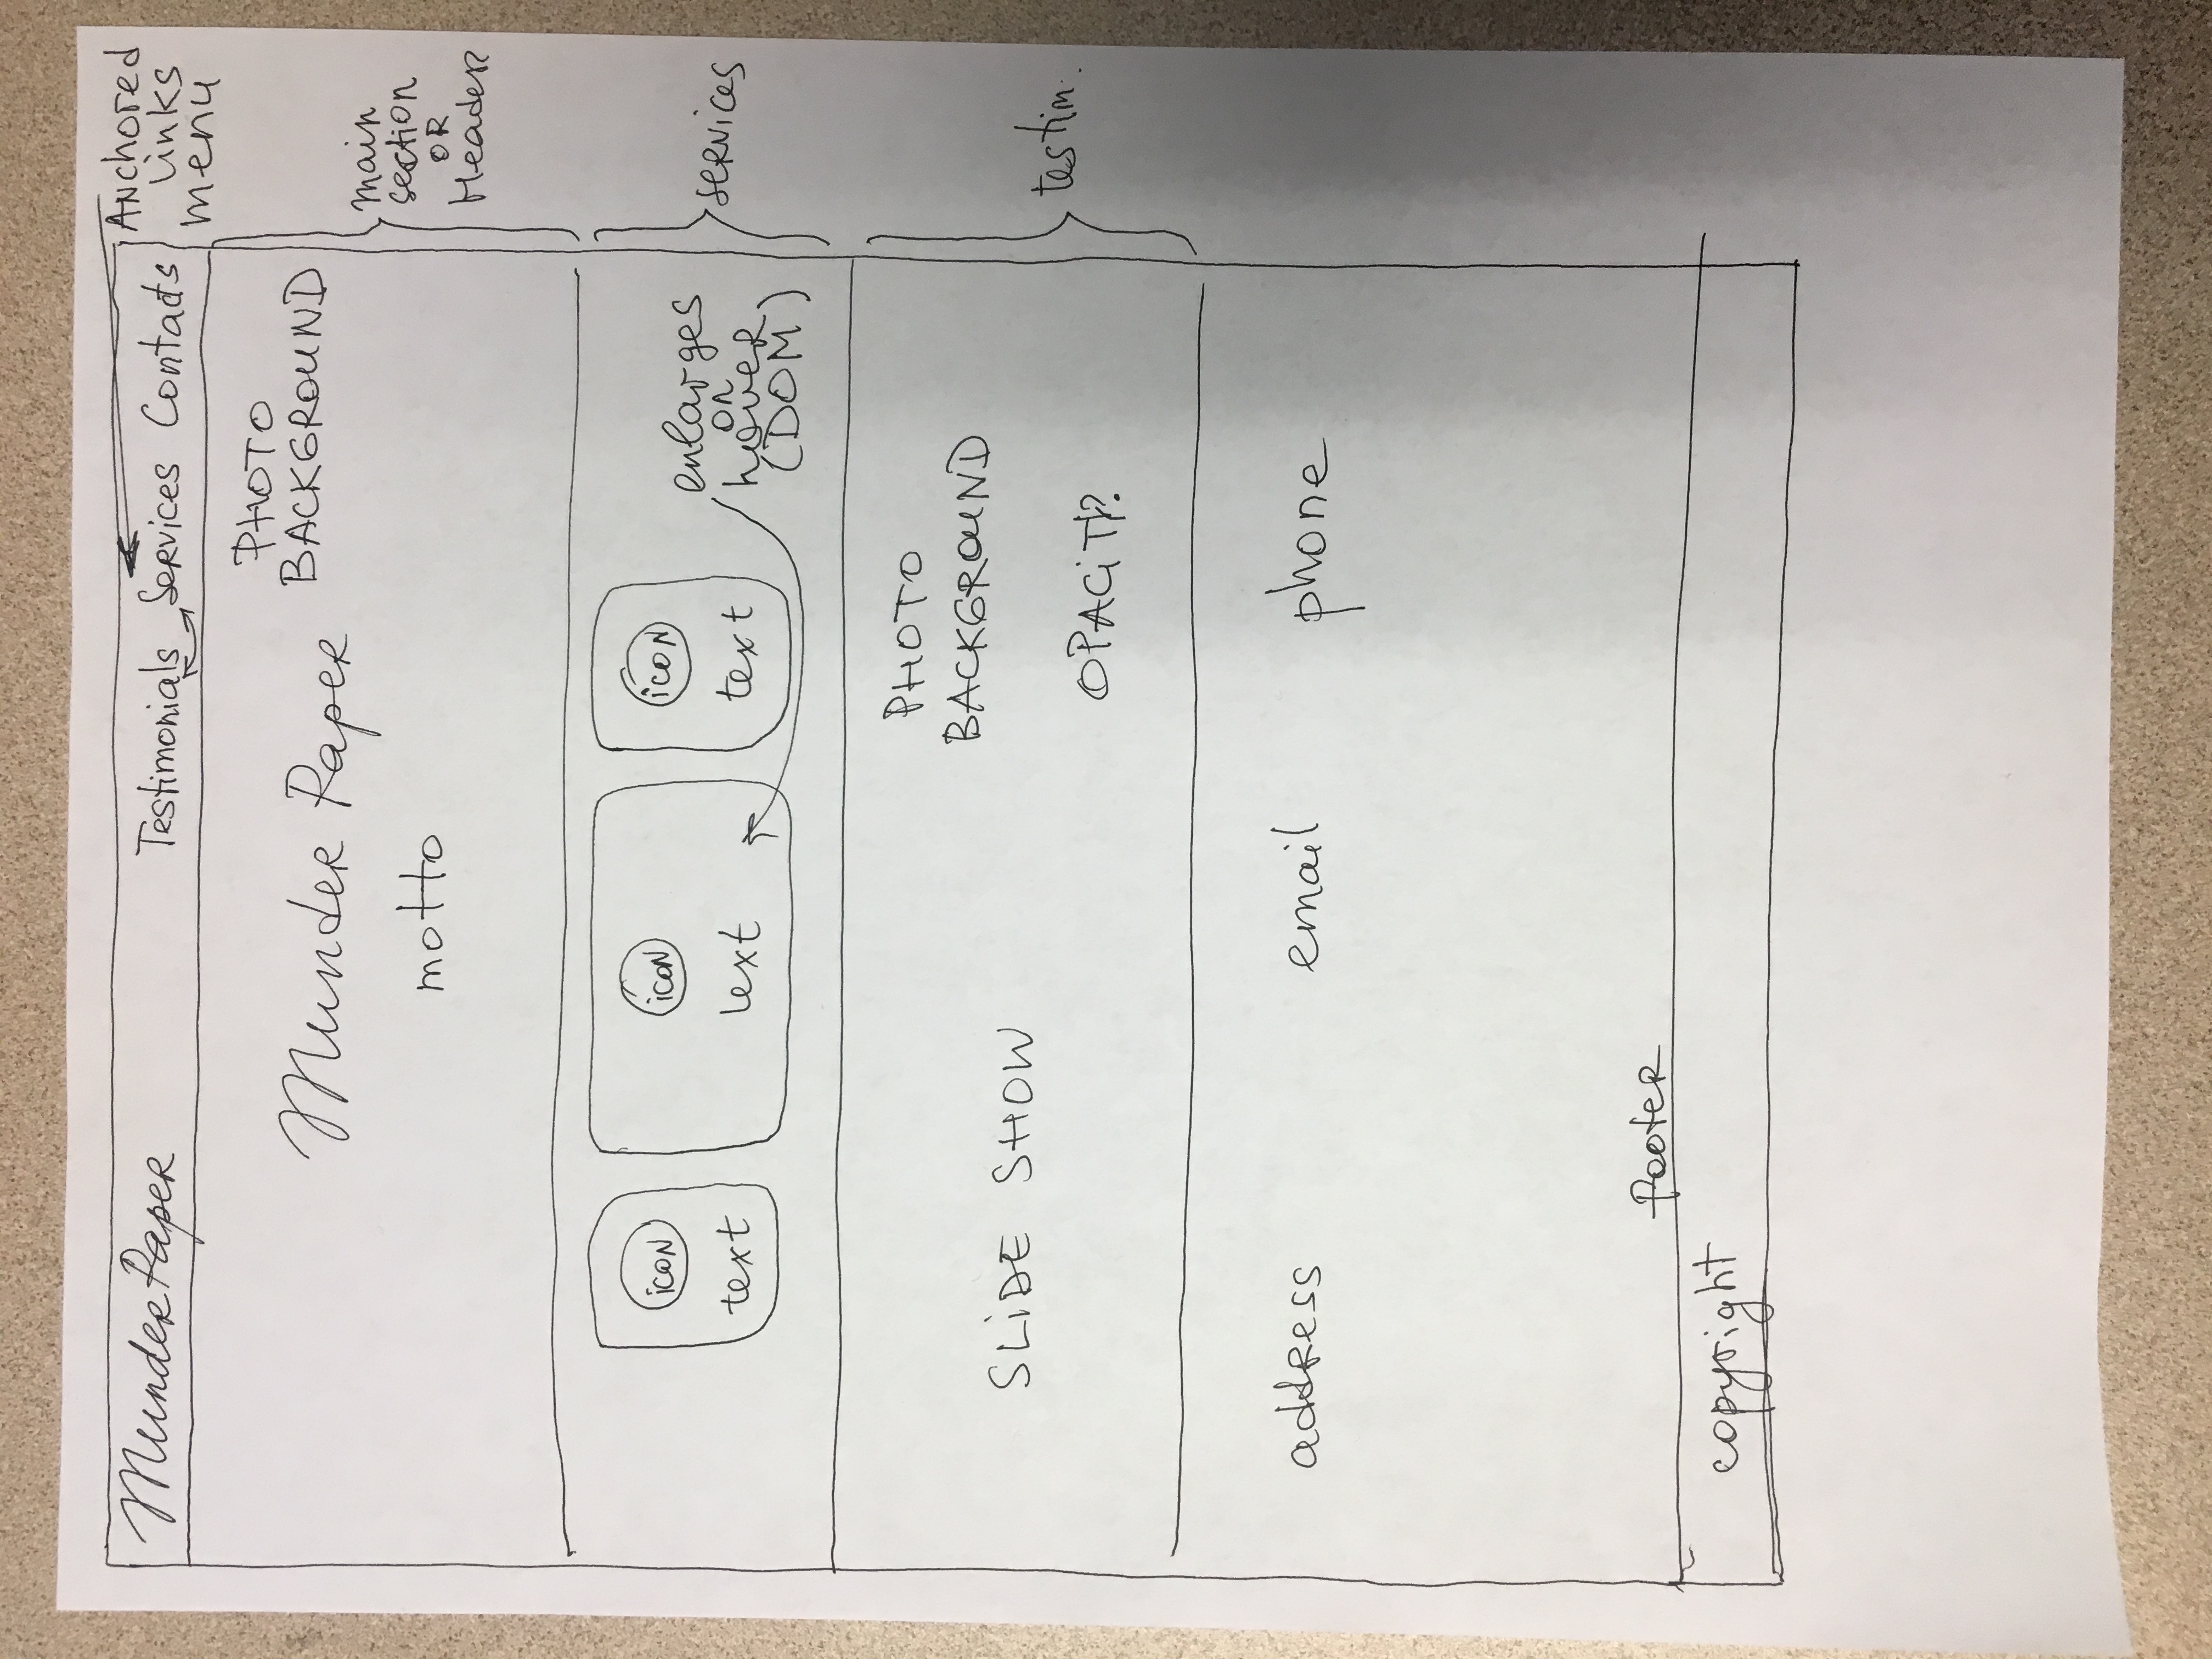 Munder Paper Testimonials Services Contacts
Anchored
links
menu
PHOTO
BACKGROUND
Munder Paper
motto
main
section
OR
Header
icon icon icon
text text text
enlarges
on
hover
(DOM)
services
PHOTO
BACKGROUND
SLIDE SHOW
OPACITY?
testim.
address email phone
footer
copyright